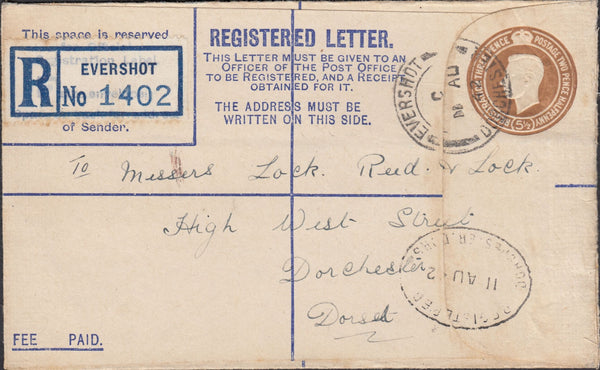 This space is reserved
of Sender.
R
EVERSHOT
No 1402
REGISTERED LETTER.
THIS LETTER MUST BE GIVEN TO AN
OFFICER OF THE POST OFFICE
TO BE REGISTERED, AND A RECEIPT
OBTAINED FOR IT.
THE ADDRESS MUST BE
WRITTEN ON THIS SIDE.
EVERSHOT
AU
POSTAGE TWO PENCE HALFPENNY
(5½)
To Messers Lock. Reed & Lock.
High West Street
Dorchester
Dorset
REGISTERED
11 AU
FEE PAID.